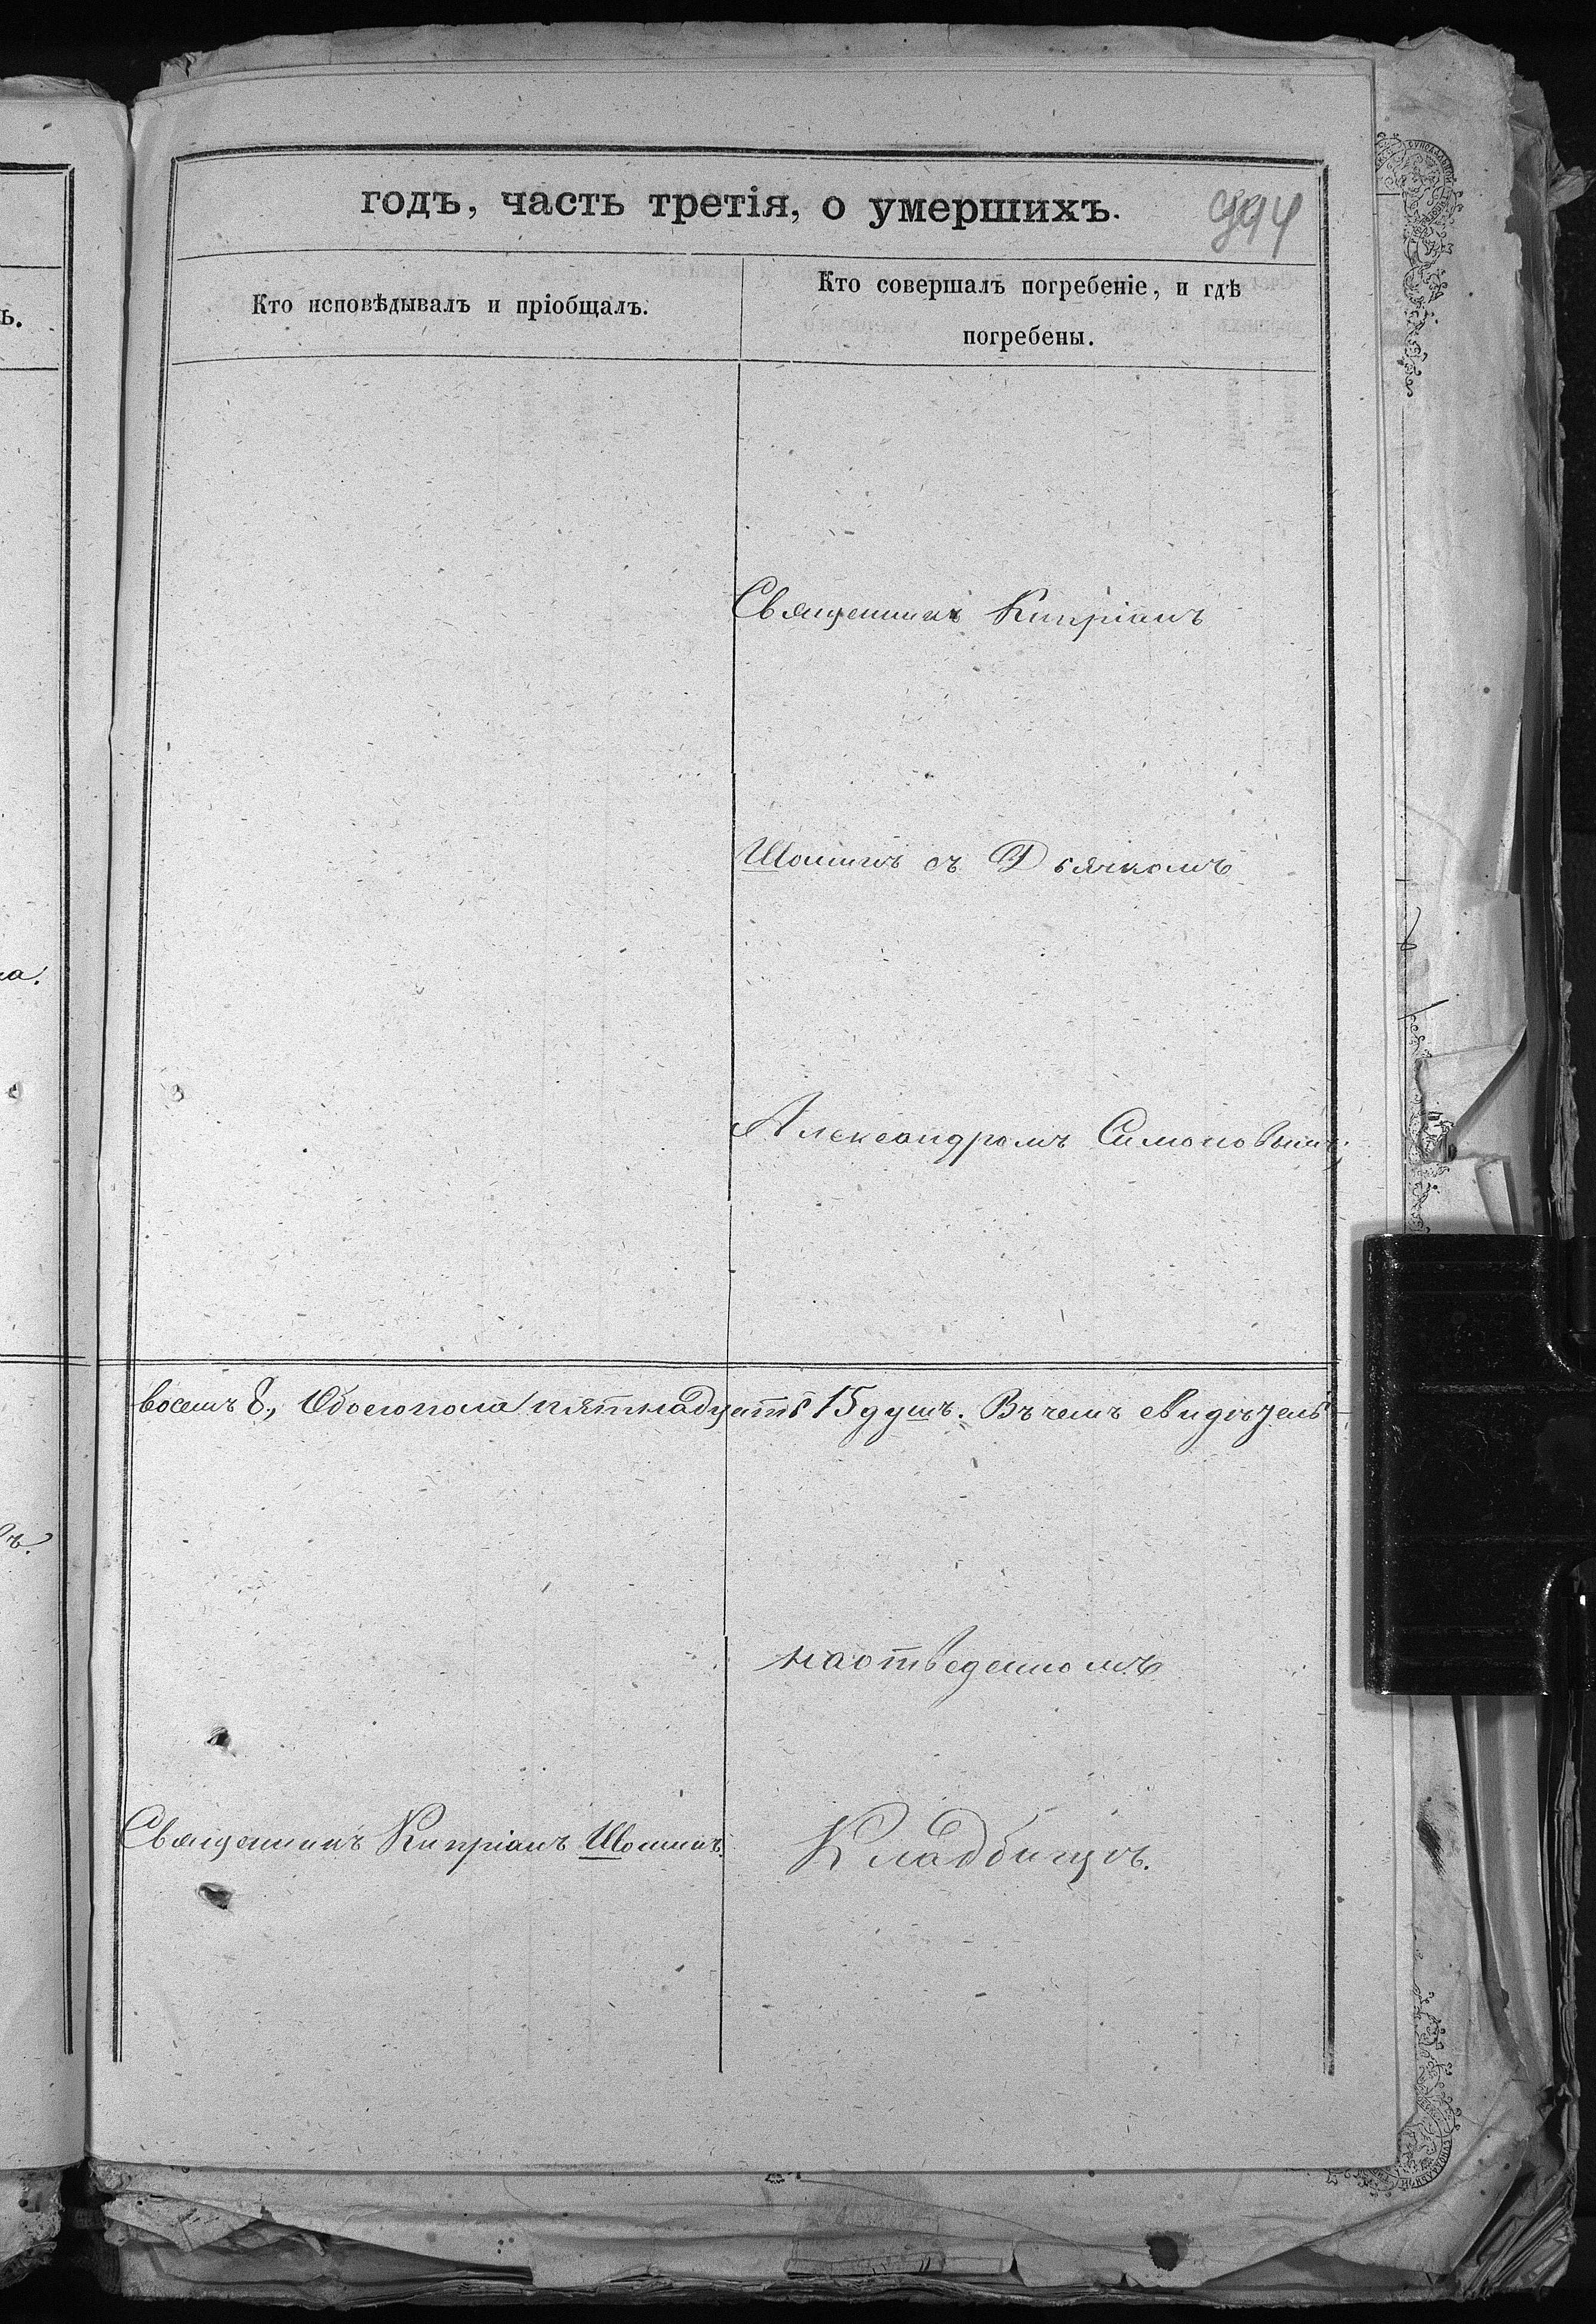 годъ, часть третія, о умершихъ.
994
Кто исповѣдывалъ и пріобщалъ.
Кто совершалъ погребеніе, и гдѣ
погребены.
Священникъ Кипріанъ
Шоминъ съ Дьячкомъ
Александромъ Симоновымъ;
восемъ 8, Обоего пола пятнадцать 15 душъ. Въ чемъ свидѣтель-
на отведенномъ
Священникъ Кипріанъ Шоминъ.
Кладбищѣ.